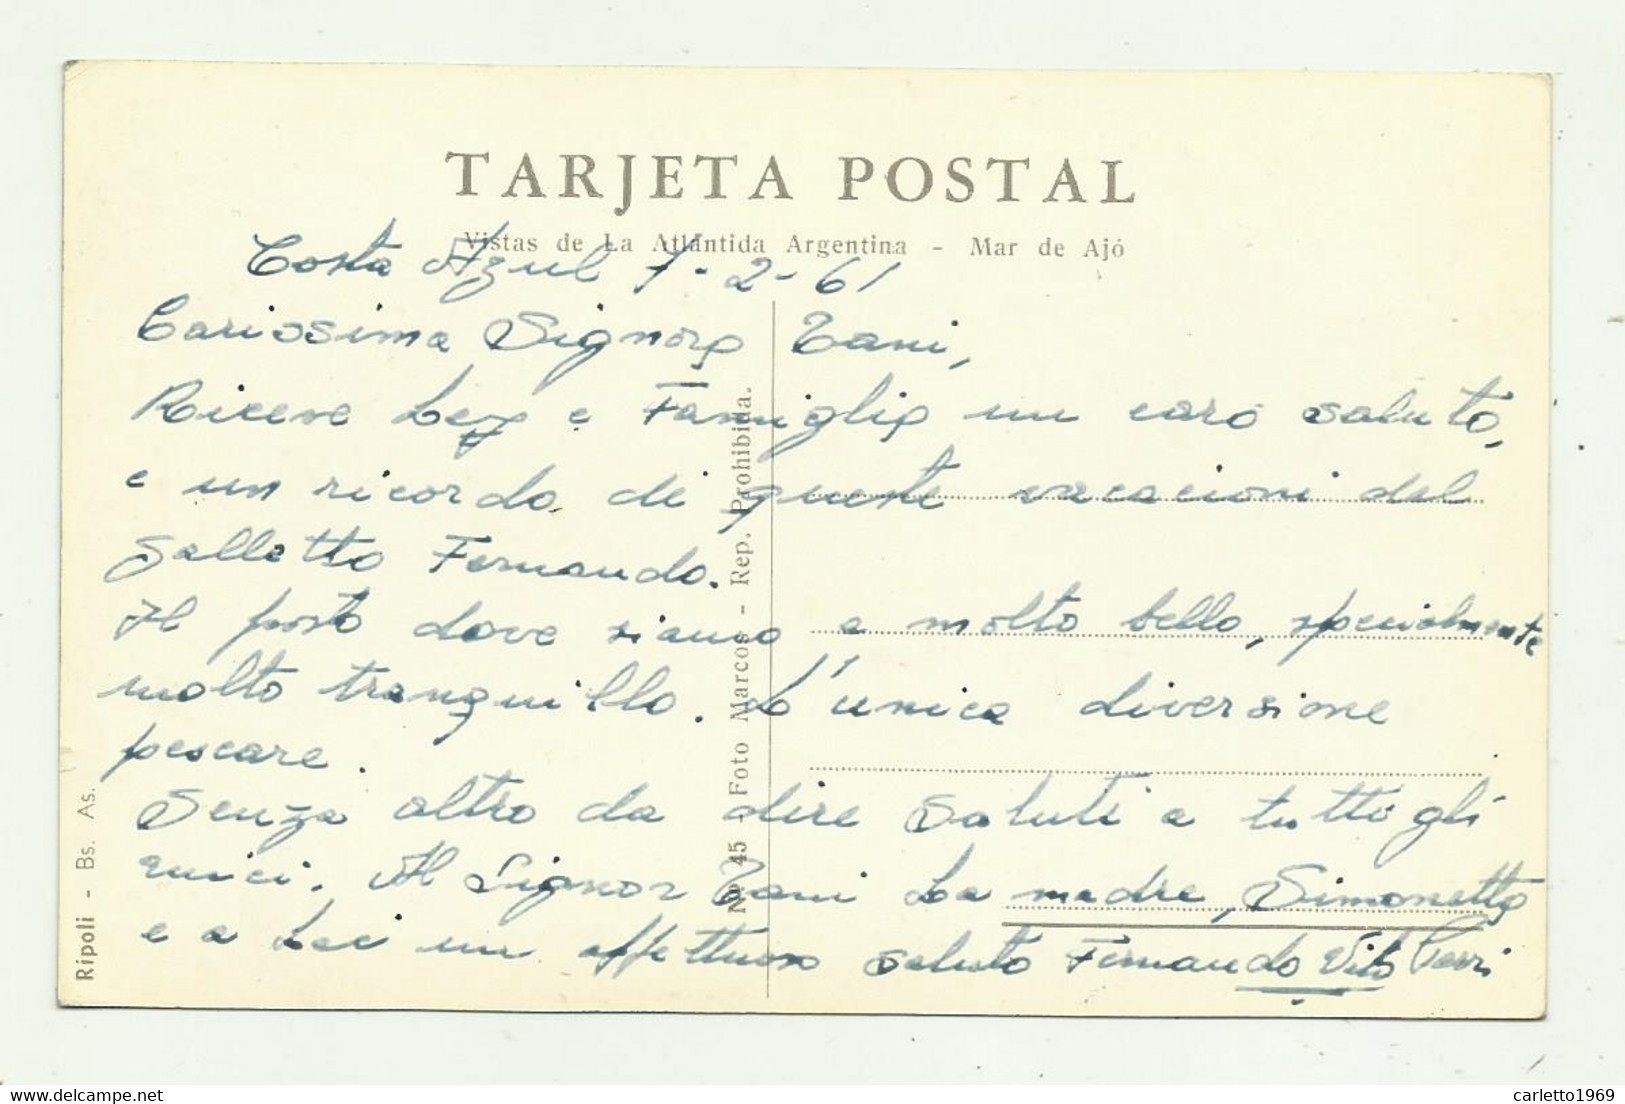 TARJETA POSTAL
Vistas de La Atlántida Argentina - Mar de Ajó
Costa Azul 7-2-61
Carissima Signora Zani,
Riceve Lei e Famiglia un caro saluto,
e un ricordo di queste vacacioni del
galletto Fernando.
Il posto dove siamo e molto bello, specialmente
molto tranquillo. L'unica diversione
pescare.
Senza altro da dire saluti a tutti gli
amici. Al Signor Zani La madre, Simonetta
e a Lei un affettuoso saluto Fernando Vito
Nº 45 - Foto Marcos - Rep. Prohibida.
Ripoli - Bs. As.
carletto1969